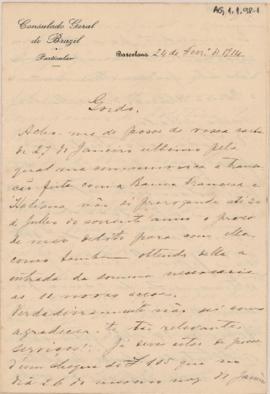 AG.1.1.98-1
Consulado Geral
do Brazil
Particular
Barcelona 24 de Fev.º de 1914
Gordo,
Acho-me de posse de vossa carta
de 27 de Janeiro ultimo pela
qual me communica a transac
feita com a Banca Franceza e
Italiana não só prorogando até 20
de Julho do corrente anno o prazo
de meu debito para com ella
como tambem obtendo della a
entrada da somma necessaria
as novas
Verdadeiramente não sei como
agradecer-te tão relevantes
serviços! Já deveis estar de posse
d'um cheque de £ 105 que no
dia 26 do mesmo mez de Janeiro